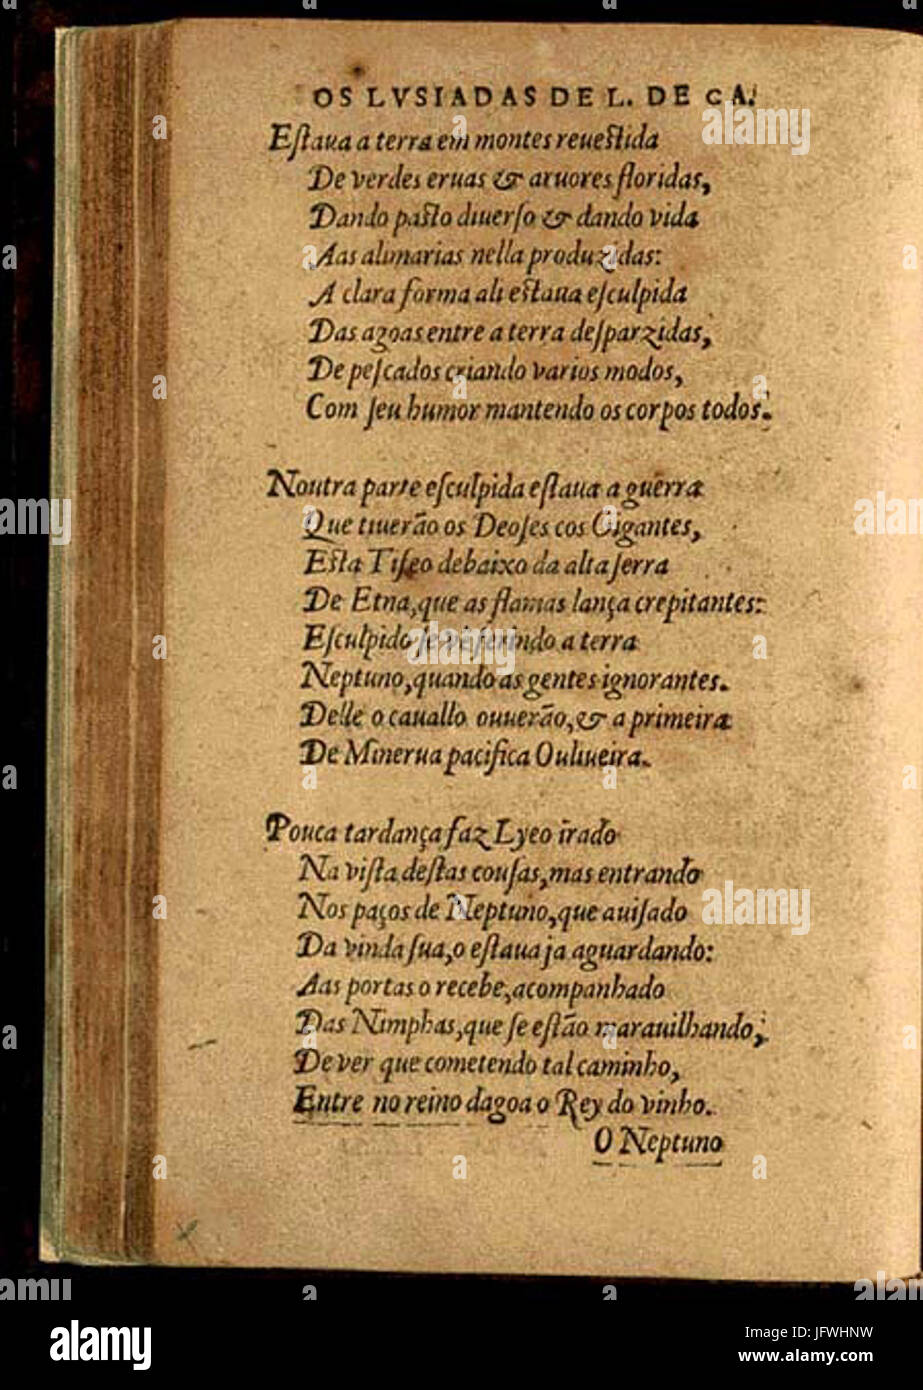 OS LVSIADAS DE L. DE CA.
Eſtaua a terra em montes reueſtida
De verdes eruas & aruores floridas,
Dando paſto diuerſo & dando vida
Aas alimarias nella produzidas:
A clara forma ali eſtaua eſculpida
Das agoas entre a terra deſparzidas,
De peſcados criando varios modos,
Com ſeu humor mantendo os corpos todos.
Noutra parte eſculpida eſtaua a guerra
Que tiuerão os Deoſes cos Gigantes,
Eſta Tifeo debaixo da alta ſerra
De Etna, que as flamas lança crepitantes:
Eſculpido ſe ve ferindo a terra
Neptuno, quando as gentes ignorantes.
Delle o cauallo ouuerão, & a primeira
De Minerua pacifica Ouliueira.
Pouca tardança faz Lyeo irado
Na viſta deſtas couſas, mas entrando
Nos paços de Neptuno, que auiſado
Da vinda ſua, o eſtaua ja aguardando:
Aas portas o recebe, acompanhado
Das Nimphas, que ſe eſtão marauilhando,
De ver que cometendo tal caminho,
Entre no reino dagoa o Rey do vinho.
O Neptuno
a alamy stock photo
JFWHNW
www.alamy.com